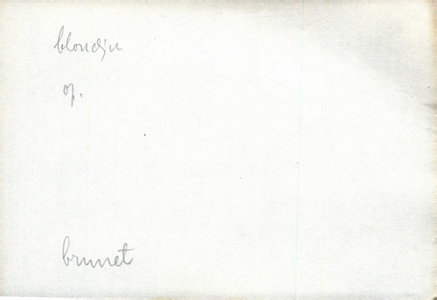 blondin
op.
brunet